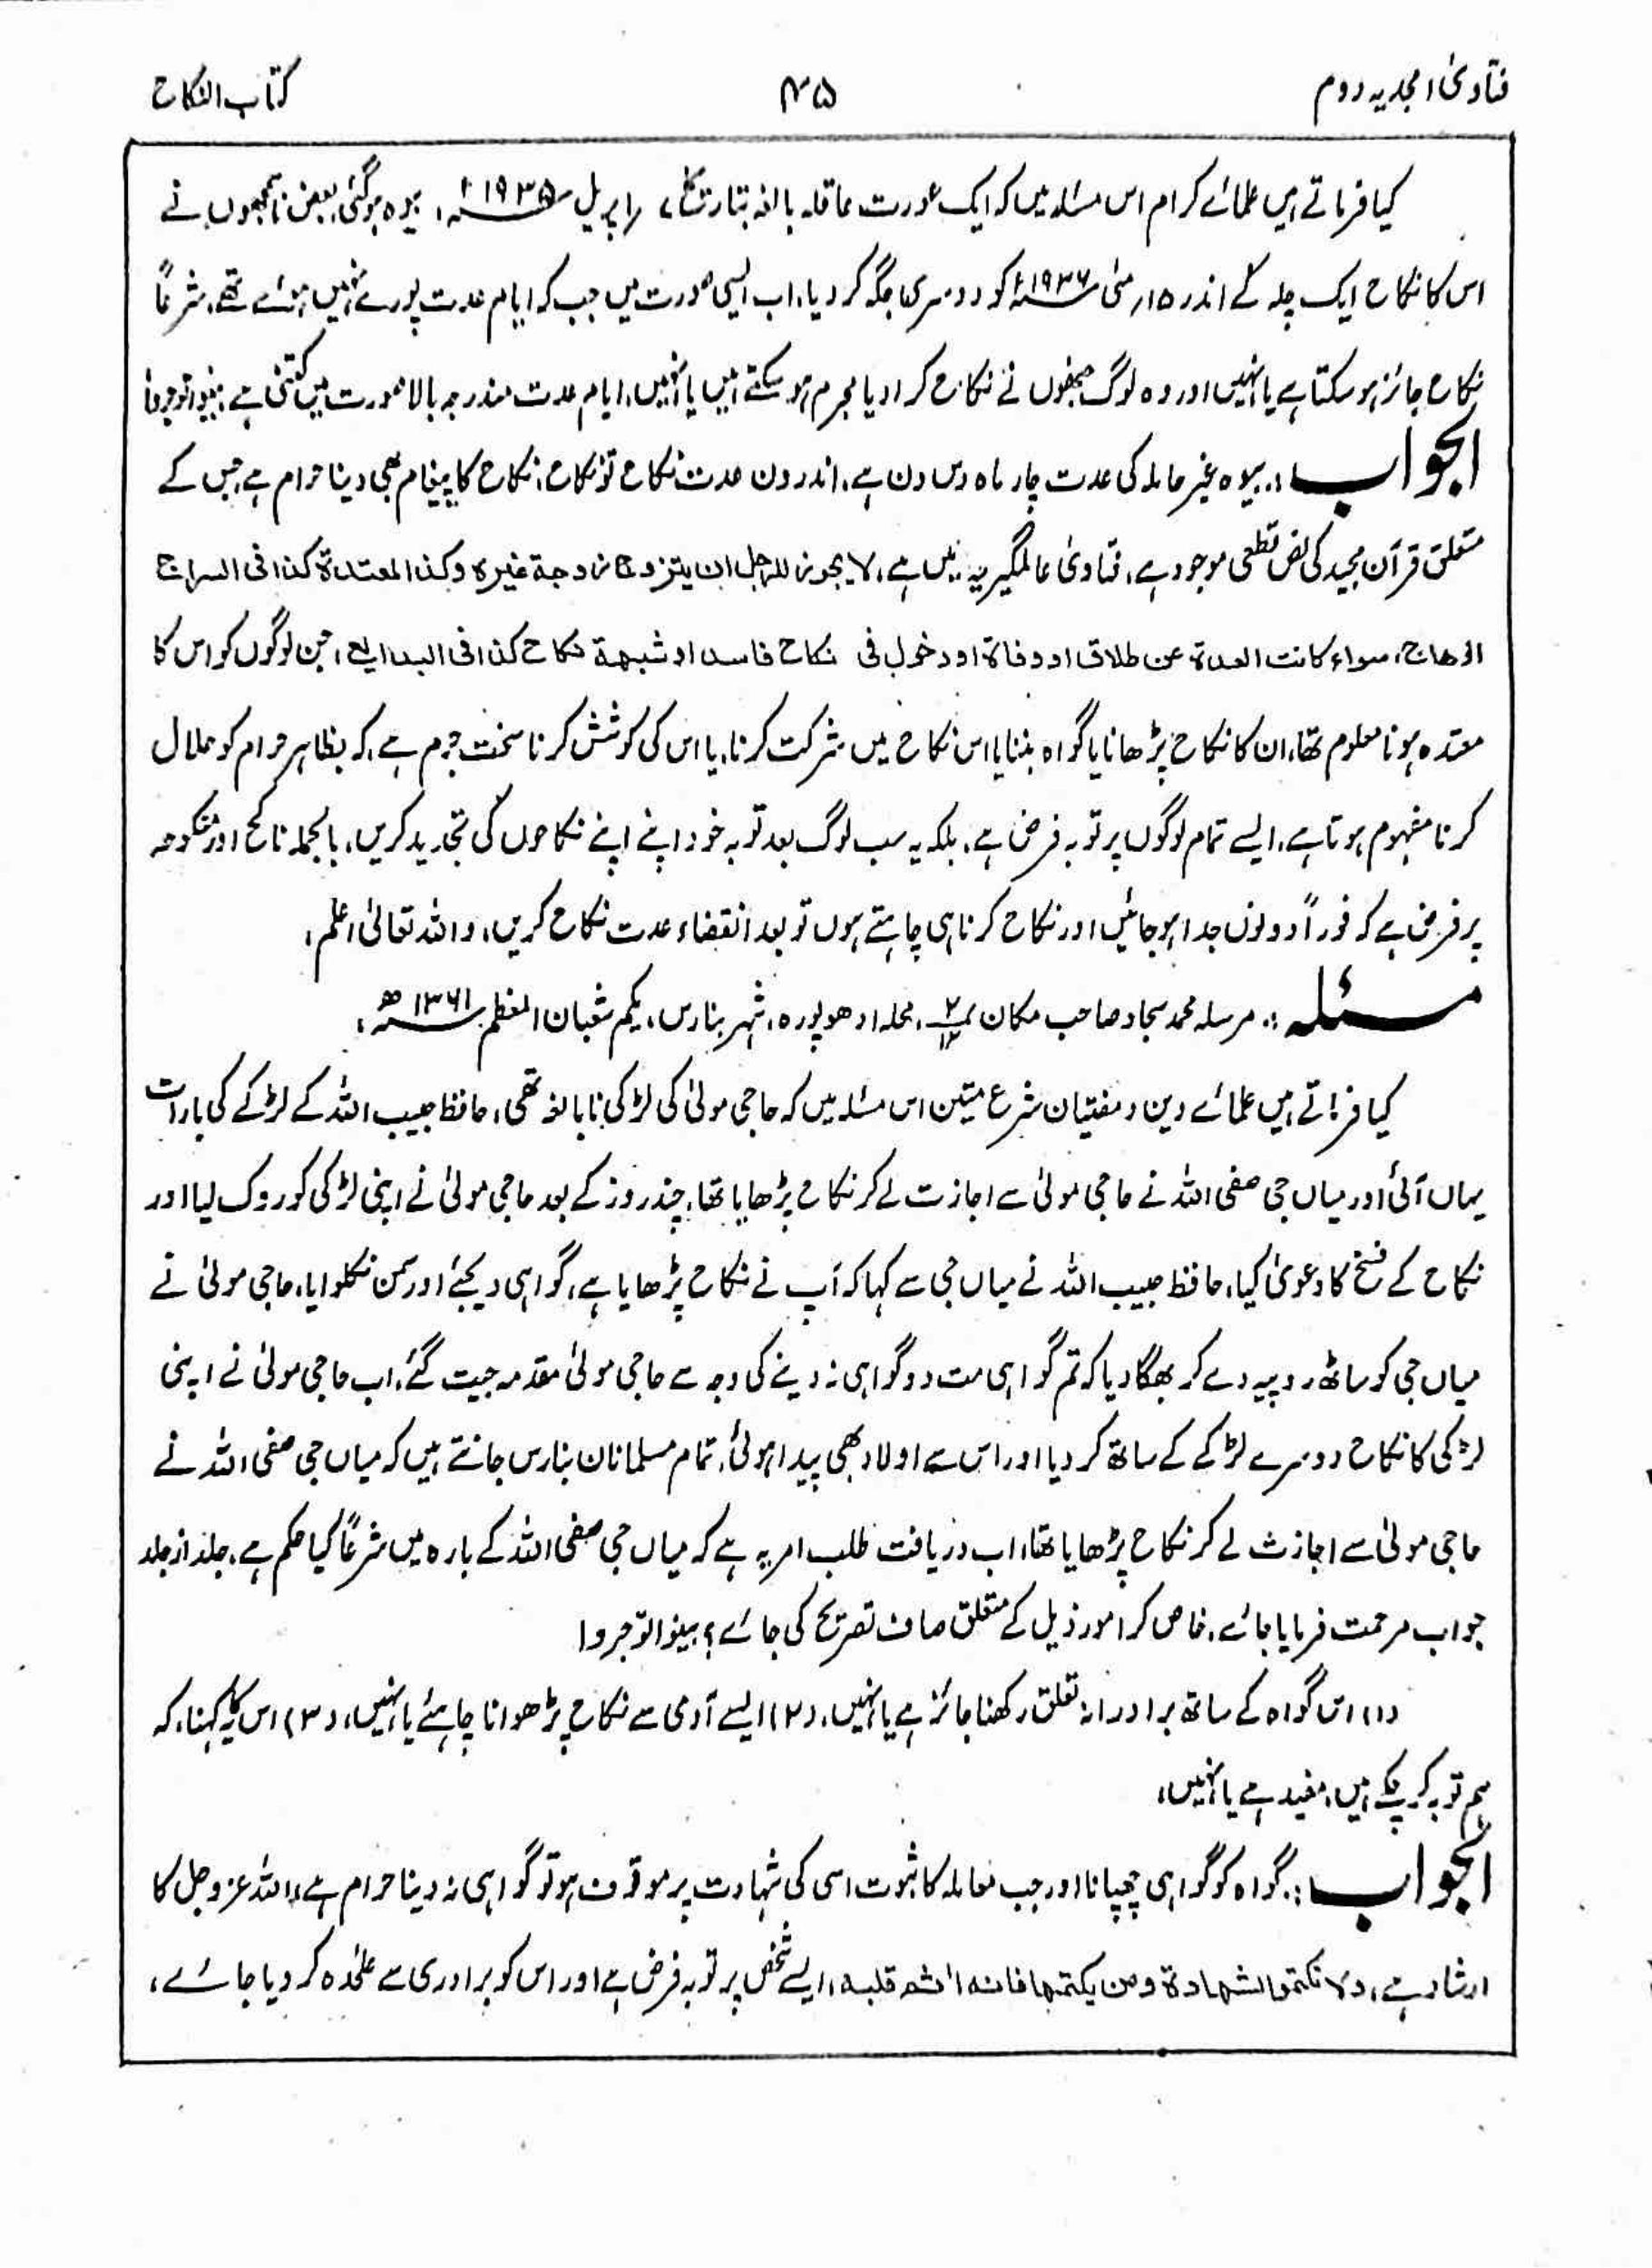 فتاویٰ امجدیہ دوم ۴۵ کتاب النکاح
کیا فرماتے ہیں علمائے کرام اس مسئلہ میں کہ ایک عورت عاقلہ بالغہ بتاریخ اپریل ۱۹۳۵ء، بیوہ ہوگئی بعض ناسمجھوں نے
اس کا نکاح ایک چلہ کے اندر ۱۵ مئی ۱۹۳۶ء کو دوسری جگہ کر دیا، اب ایسی صورت میں جب کہ ایام عدت پورے نہیں ہوئے تھے، شرعاً
نکاح جائز ہو سکتا ہے یا نہیں اور وہ لوگ جنھوں نے نکاح کرا دیا مجرم ہو سکتے ہیں یا نہیں، ایام عدت مندرجہ بالا صورت میں کتنی ہے بینوا توجروا
الجواب:۔ بیوہ غیر حاملہ کی عدت چار ماہ دس دن ہے، اندرون عدت نکاح تو نکاح، نکاح کا پیغام بھی دینا حرام ہے، جس کے
متعلق قرآن مجید کی نص قطعی موجود ہے، فتاویٰ عالمگیریہ میں ہے، لا یجوز للرجل ان یتزوج زوجۃ غیرہ وکذا المعتدۃ کذا فی السراج
الوھاج، سواء کانت العدۃ عن طلاق او وفاۃ او دخول فی نکاح فاسد او شبھۃ نکاح کذا فی البدایع، جن لوگوں کو اس کا
معتدہ ہونا معلوم تھا، ان کا نکاح پڑھانا یا گواہ بننا یا اس نکاح میں شرکت کرنا، یا اس کی کوشش کرنا سخت جرم ہے، کہ بظاہر حرام کو حلال
کرنا مفہوم ہوتا ہے، ایسے تمام لوگوں پر توبہ فرض ہے، بلکہ یہ سب لوگ بعد توبہ خود اپنے اپنے نکاحوں کی تجدید کریں، بالجملہ ناکح اور منکوحہ
پر فرض ہے کہ فوراً دونوں جدا ہو جائیں اور نکاح کرنا ہی چاہتے ہوں تو بعد انقضاء عدت نکاح کریں، واللہ تعالیٰ اعلم،
مسئلہ:۔ مرسلہ محمد سجاد صاحب مکان، محلہ ادھوپورہ، شہر بنارس، یکم شعبان المعظم ۱۳۶۱ھ،
کیا فرماتے ہیں علمائے دین و مفتیان شرع متین اس مسئلہ میں کہ حاجی مولیٰ کی لڑکی نابالغہ تھی، حافظ حبیب اللہ کے لڑکے کی بارات
یہاں آئی اور میاں جی صفی اللہ نے حاجی مولیٰ سے اجازت لے کر نکاح پڑھایا تھا، چند روز کے بعد حاجی مولیٰ نے اپنی لڑکی کو روک لیا اور
نکاح کے فسخ کا دعویٰ کیا، حافظ حبیب اللہ نے میاں جی سے کہا کہ آپ نے نکاح پڑھایا ہے، گواہی دیجئے اور سمن نکلوایا، حاجی مولیٰ نے
میاں جی کو ساٹھ روپیہ دے کر بھگا دیا کہ تم گواہی مت دو گواہی نہ دینے کی وجہ سے حاجی مولیٰ مقدمہ جیت گئے، اب حاجی مولیٰ نے اپنی
لڑکی کا نکاح دوسرے لڑکے کے ساتھ کر دیا اور اس سے اولاد بھی پیدا ہوئی، تمام مسلمانان بنارس جانتے ہیں کہ میاں جی صفی اللہ نے
حاجی مولیٰ سے اجازت لے کر نکاح پڑھایا تھا، اب دریافت طلب امر یہ ہے کہ میاں جی صفی اللہ کے بارہ میں شرعاً کیا حکم ہے، جلد از جلد
جواب مرحمت فرمایا جائے، خاص کر امور ذیل کے متعلق صاف تصریح کی جائے؟ بینوا توجروا
(۱) اس گواہ کے ساتھ برادرانہ تعلق رکھنا جائز ہے یا نہیں، (۲) ایسے آدمی سے نکاح پڑھوانا چاہئے یا نہیں، (۳) اس کا یہ کہنا، کہ
ہم توبہ کر چکے ہیں، مفید ہے یا نہیں،
الجواب:۔ گواہ کو گواہی چھپانا اور جب معاملہ کا ثبوت اسی کی شہادت پر موقوف ہو تو گواہی نہ دینا حرام ہے، اللہ عزوجل کا
ارشاد ہے، ولا تکتموا الشھادۃ ومن یکتمھا فانہ اٰثم قلبہ، ایسے شخص پر توبہ فرض ہے اور اس کو برادری سے علٰحدہ کر دیا جائے،